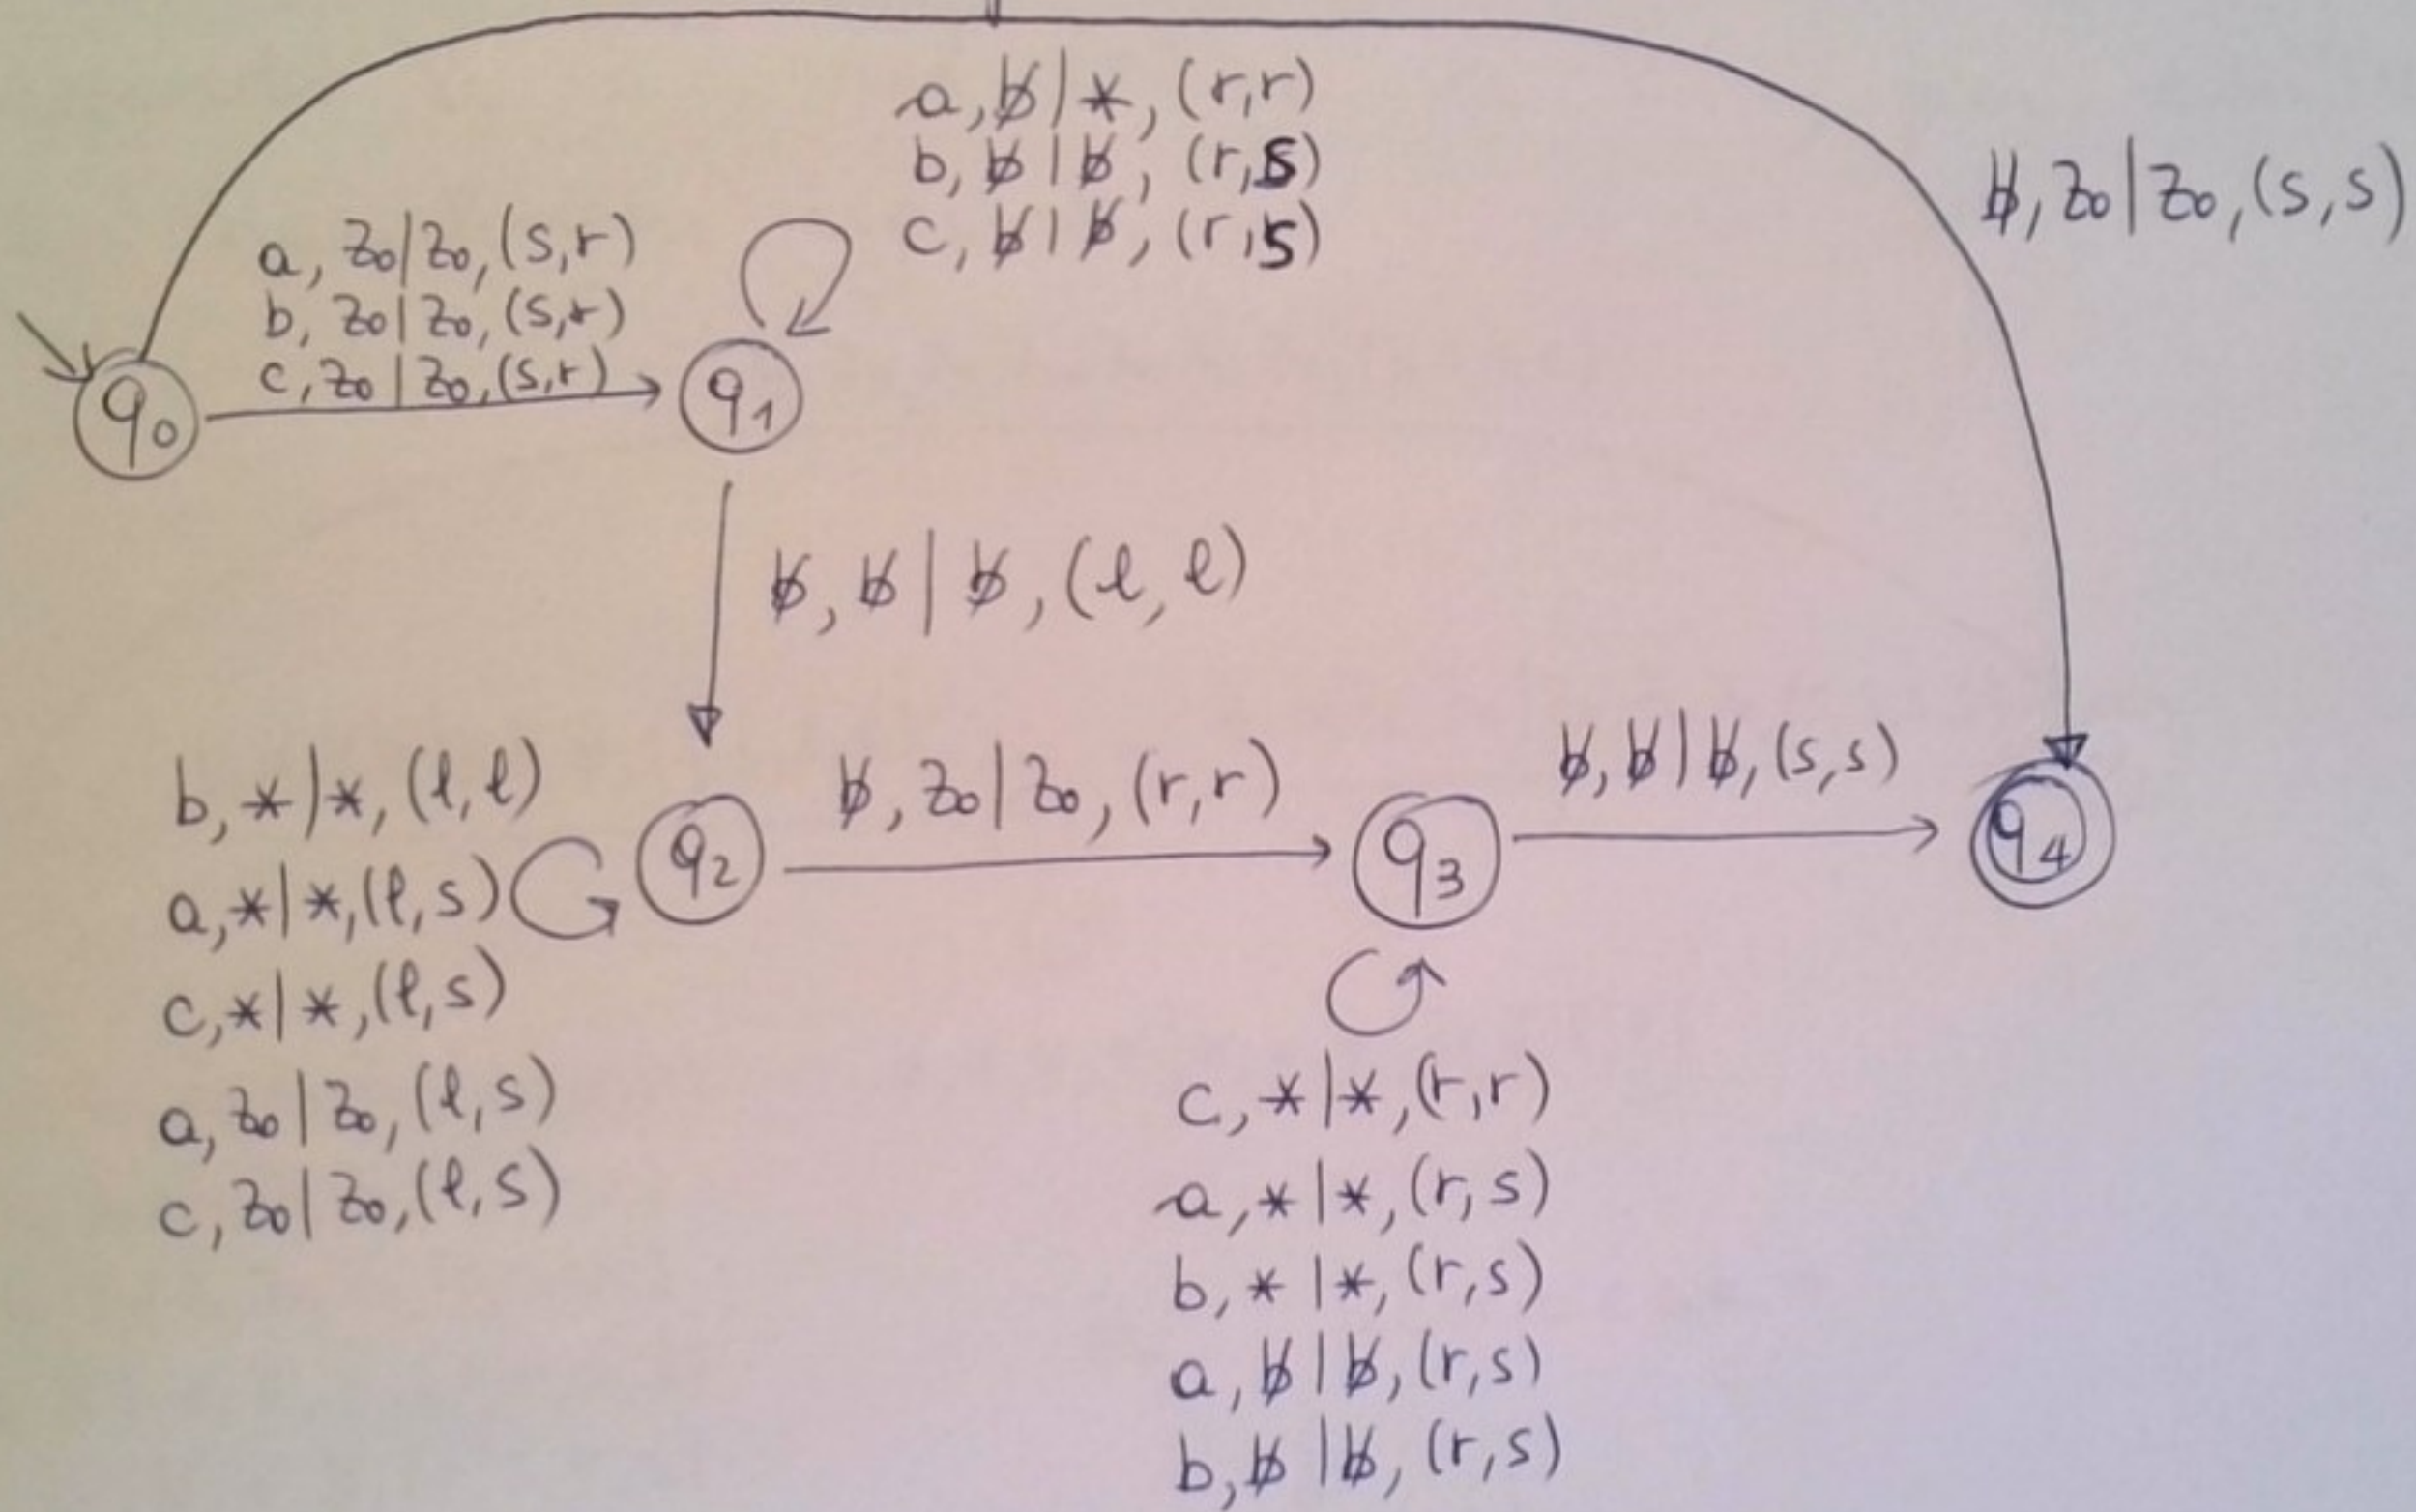 a, ƀ | *, (r,r)
b, ƀ | ƀ, (r,s)
c, ƀ | ƀ, (r,s)
ƀ, z₀ | z₀, (s,s)
a, z₀ | z₀, (s,r)
b, z₀ | z₀, (s,r)
c, z₀ | z₀, (s,r)
q₀
q₁
ƀ, ƀ | ƀ, (l, l)
b, * | *, (l, l)
a, * | *, (l, s)
c, * | *, (l, s)
a, z₀ | z₀, (l, s)
c, z₀ | z₀, (l, s)
q₂
ƀ, z₀ | z₀, (r,r)
q₃
ƀ, ƀ | ƀ, (s,s)
q₄
c, * | *, (r,r)
a, * | *, (r,s)
b, * | *, (r,s)
a, ƀ | ƀ, (r,s)
b, ƀ | ƀ, (r,s)